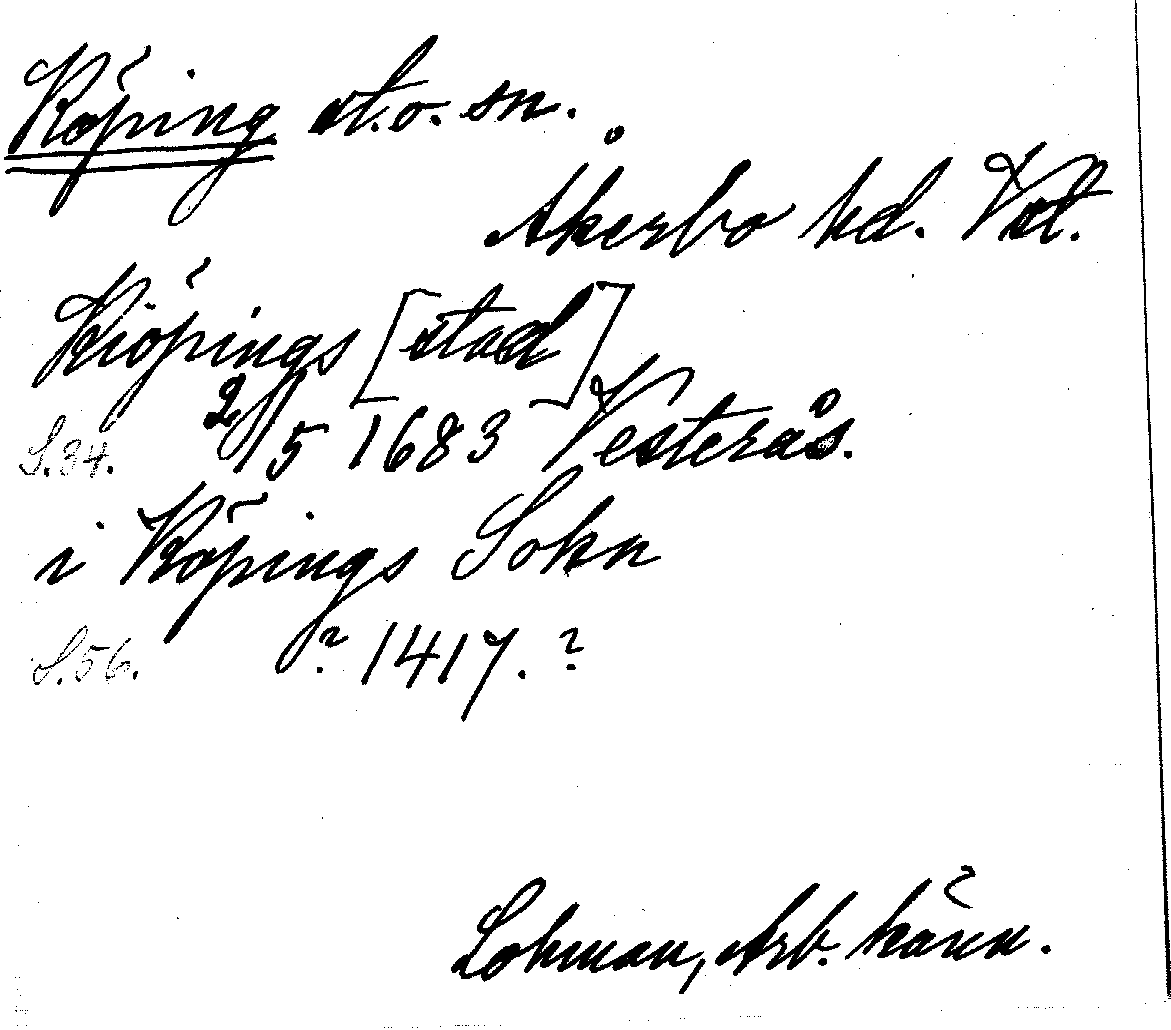 Köping st. o. sn.
Åkerbo hd. Vstl.
Kiöpings [stad]
S. 34. 2/5 1683 Vesterås.
i Köpings Sokn
S. 56. ? 1417. ?
Lohman, Arb. känn.